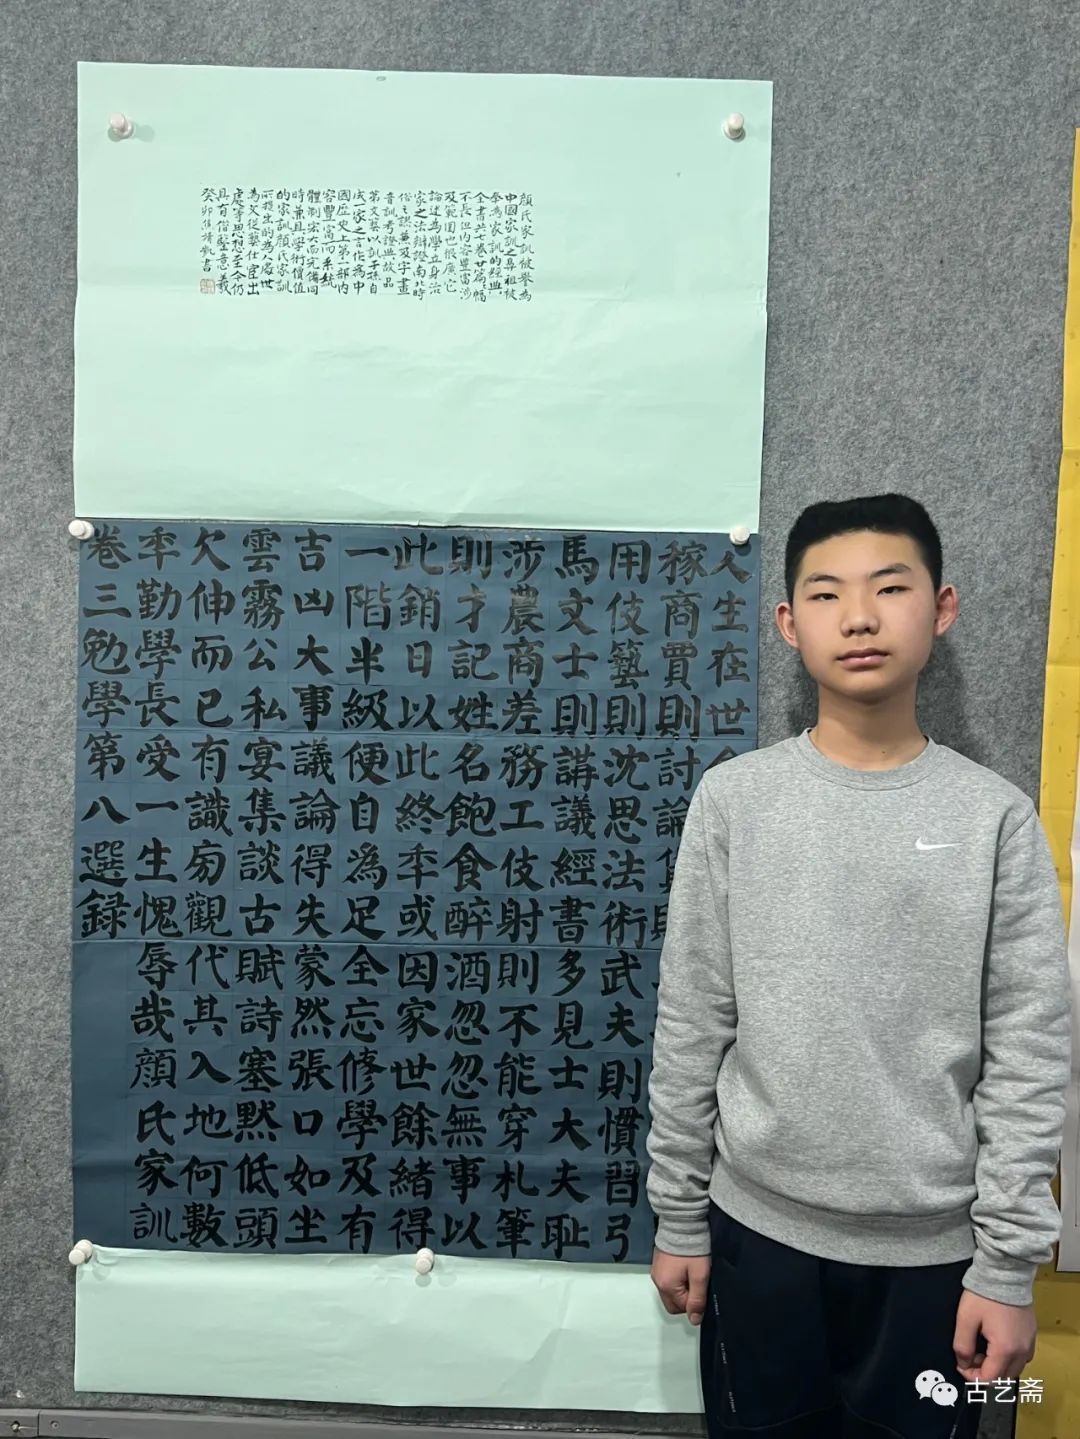 顔氏家訓被譽為
中國家訓之鼻祖被
奉為家訓的經典
全書共七卷廿篇幅
不長但内容豐富涉
及範圍也很廣它
論述為學立身治
家之法辯證南北時
俗之誤兼及字畫
音訓考證典故品
第文藝以訓子孫自
成一家之言作為中
國歷史上第一部内
容豐富而系統
體制宏大而完備同
時兼具學術價值
的家訓顔氏家訓
所提出的為人處世
為文從藝仕宦出
處等思想至今仍
具有借鑒意義
癸卯 書
人生在世
稼商賈則討論
用伎藝則沈思法術武夫則慣習弓
馬文士則講議經書多見士大夫耻
涉農商差務工伎射則不能穿札筆
則才記姓名飽食醉酒忽忽無事以
此銷日以此終秊或因家世餘緒得
一階半級便自為足全忘修學及有
吉凶大事議論得失蒙然張口如坐
雲霧公私宴集談古賦詩塞默低頭
欠伸而已有識旁觀代其入地何數
秊勤學長受一生愧辱哉顔氏家訓
卷三勉學第八選録
古艺斋